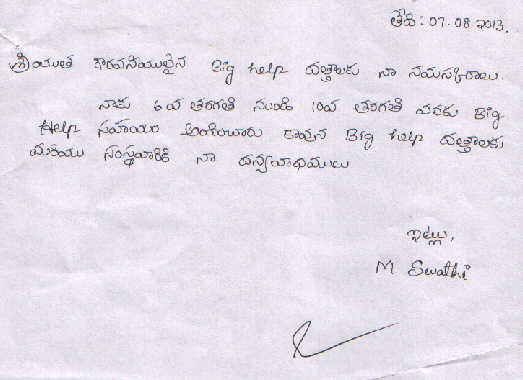 తేది : 07.08.2013.
శ్రీయుత గౌరవనియులైన Big help దాత్తాలకు నా నమస్కారాలు.
నాకు 6వ తరగతి నుండి 10వ తరగతి వరకు Big
Help సహాయం అందించారు కావున Big help దాత్తాలకు
మరియు సంస్థవారికి నా దన్యవాధములు
ఇట్లు,
M Swathi